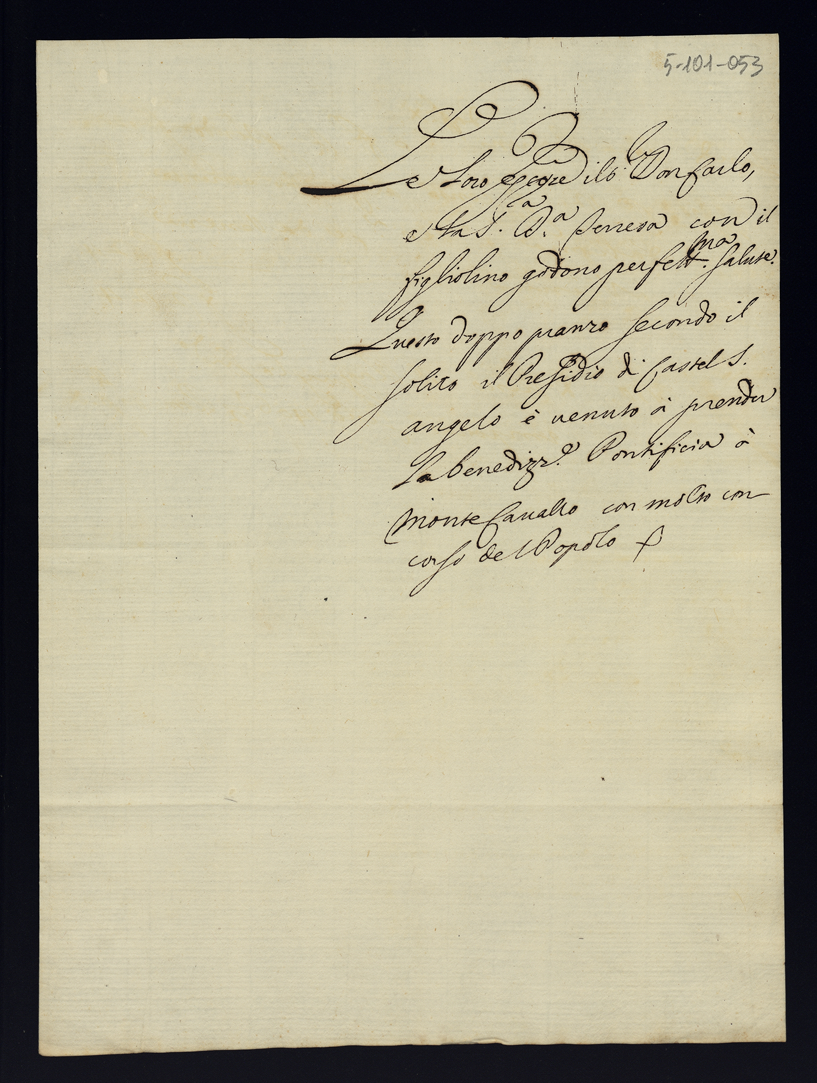 5-101-053
Le Loro Ecc.ze il S.r Don Carlo,
e la S.ra D.a Teresa con il
figliolino godono perfett.ma salute.
Questo doppo pranzo secondo il
solito il Presidio di Castel S.
angelo è venuto à prender
la benediz.e Pontificia à
Monte Cavallo con molto con
corso del Popolo